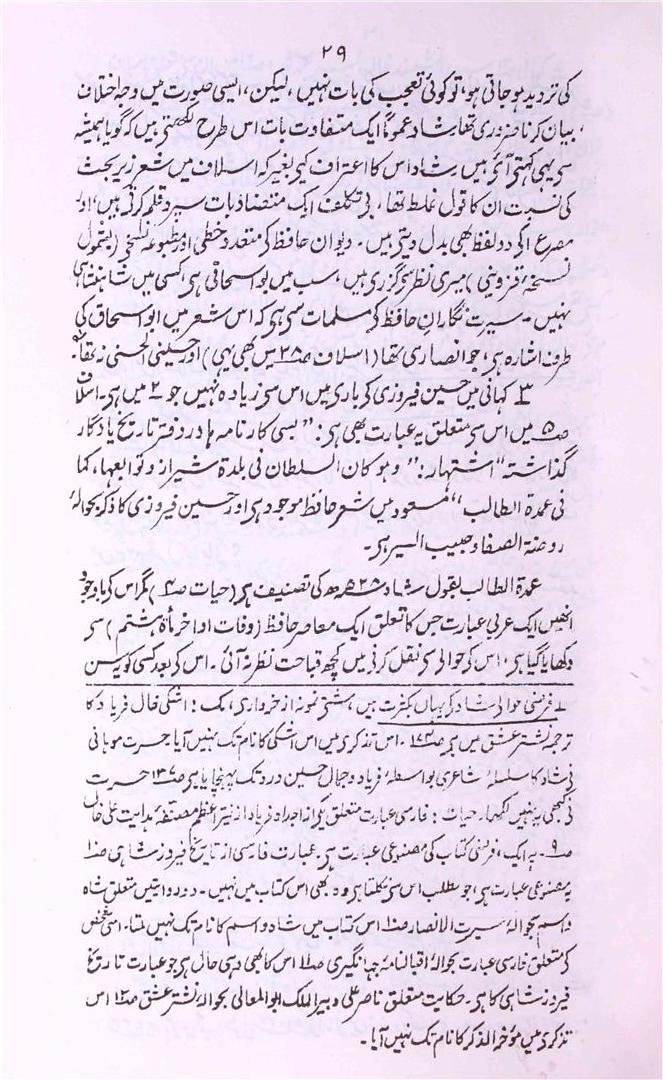 ۲۹
کی تردید ہو جاتی ہو، تو کوئی تعجب کی بات نہیں، لیکن، ایسی صورت میں وجہ اختلاف
بیان کرنا ضروری تھا، شاد عموماً ایک متفاوت بات اس طرح لکھتی ہیں کہ گویا ہمیشہ
سی یہی کہتی آئی ہیں۔ شاد اس کا اعتراف کیی بغیر کہ اسلاف میں شعر زیر بحث
کی نسبت ان کا قول غلط تھا، بی تکلف ایک متضاد بات سپرد قلم کرتی ہیں، اور
مصرع ۱ کی دو لفظ بھی بدل دیتی ہیں۔ دیوان حافظ کی متعدد خطی اور مطبوعہ نسخی (بشمول
نسخۂ قزوینی) میری نظر سی گزری ہیں، سب میں بو اسحاقی ہی، کسی میں شاہنشاہی
نہیں۔ سیرت نگاران حافظ کی مسلمات سی ہی کہ اس شعر میں ابو اسحاق کی
طرف اشارہ ہی، جو انصاری تھا (اسلاف ص ۲۸ میں بھی یہی) اور حسینی الحسنی نہ تھا۔
۳ کہانی میں حسین فیروزی کی باری میں اس سی زیادہ نہیں جو ۲ میں ہی۔ اسلاف
ص ۵ میں اس سی متعلق یہ عبارت بھی ہی: "بسی کارنامہ ہا در دفتر تاریخ یادگار
گذاشتہ" اشتہار: "وھو کان السلطان فی بلدۃ شیراز و توابعہا، کما
فی عمدۃ الطالب"، مسعود میں شعر حافظ موجود ہی اور حسین فیروزی کا ذکر بحوالۂ
روضۃ الصفا و حبیب السیر ہی۔
عمدۃ الطالب بقول شاد ۵۲۸ھ کی تصنیف ہی (حیات ص ۴) مگر اس کی باوجود
انھیں ایک عربی عبارت جس کا تعلق ایک معاصر حافظ (وفات اواخر مأۃ ہشتم) سی
دکھایا گیا ہی، اس کی حوالی سی نقل کرنی میں کچھ قباحت نظر نہ آئی۔ اس کی بعد کسی کو یہ
۱ فرضی حوالی شاد کی یہاں بکثرت ہیں، مشتی نمونہ از خرواری، یک: اشکی خال فریاد کا
ترجمہ نشتر عشق میں ہی ص ۱۷۴۔ اس تذکری میں اس اشکی کا نام تک نہیں آیا۔ حسرت موہانی
نی شاد کا سلسلۂ شاعری بواسطۂ فریاد و جمال حسین درد تک پہنچایا ہی ص ۱۳۷ حسرت
نی کبھی یہ نہیں لکھا۔ حیات: فارسی عبارت متعلق یکی از اجداد فریاد از نیر اعظم مصنفۂ ہدایت علی خاں
ص ۹۔ یہ ایک، فرضی کتاب کی مصنوعی عبارت ہی۔ عبارت فارسی از تاریخ فیروز شاہی ص ۱۰
یہ مصنوعی عبارت ہی، جو مطلب اس سی نکلتا ہی وہ بھی اس کتاب میں نہیں۔ دو روایتیں متعلق شاہ
واسم بحوالۂ سیرت الانصار ص ۱۰ اس کتاب میں شاہ واسم کا نام تک نہیں ملتا۔ اسی شخص
کی متعلق فارسی عبارت بحوالۂ اقبالنامہ جہانگیری ص ۱۱ اس کا بھی وہی حال ہی جو عبارت تاریخ
فیروز شاہی کا ہی۔ حکایت متعلق ناصر علی و دبیر الملک ابو المعالی بحوالۂ نشتر عشق ص ۱۲ اس
تذکری میں مؤخر الذکر کا نام تک نہیں آیا۔